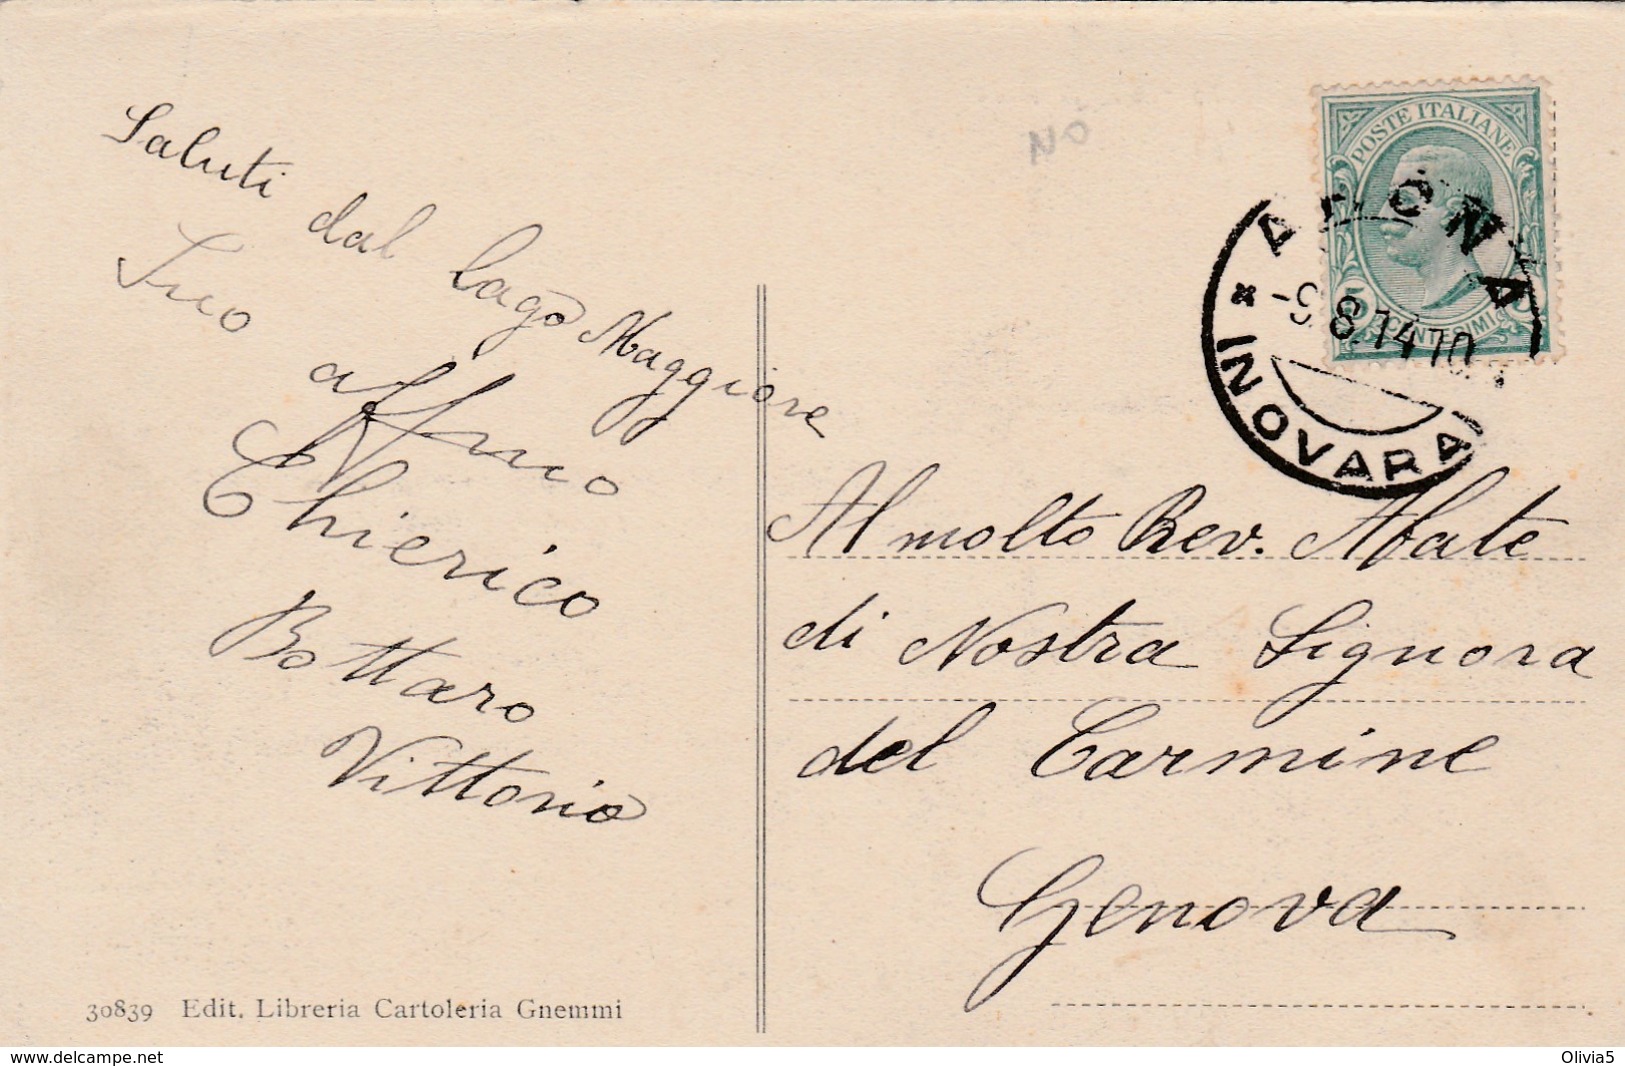 Saluti dal lago Maggiore
Suo affmo
Chierico
Bottaro
Vittorio
30839 Edit. Libreria Cartoleria Gnemmi
NO
POSTE ITALIANE
5 CENTESIMI 5
ARONA
-9.8.14 10
* (NOVARA
Al molto Rev. Abate
di Nostra Signora
del Carmine
Genova
www.delcampe.net
Olivia5